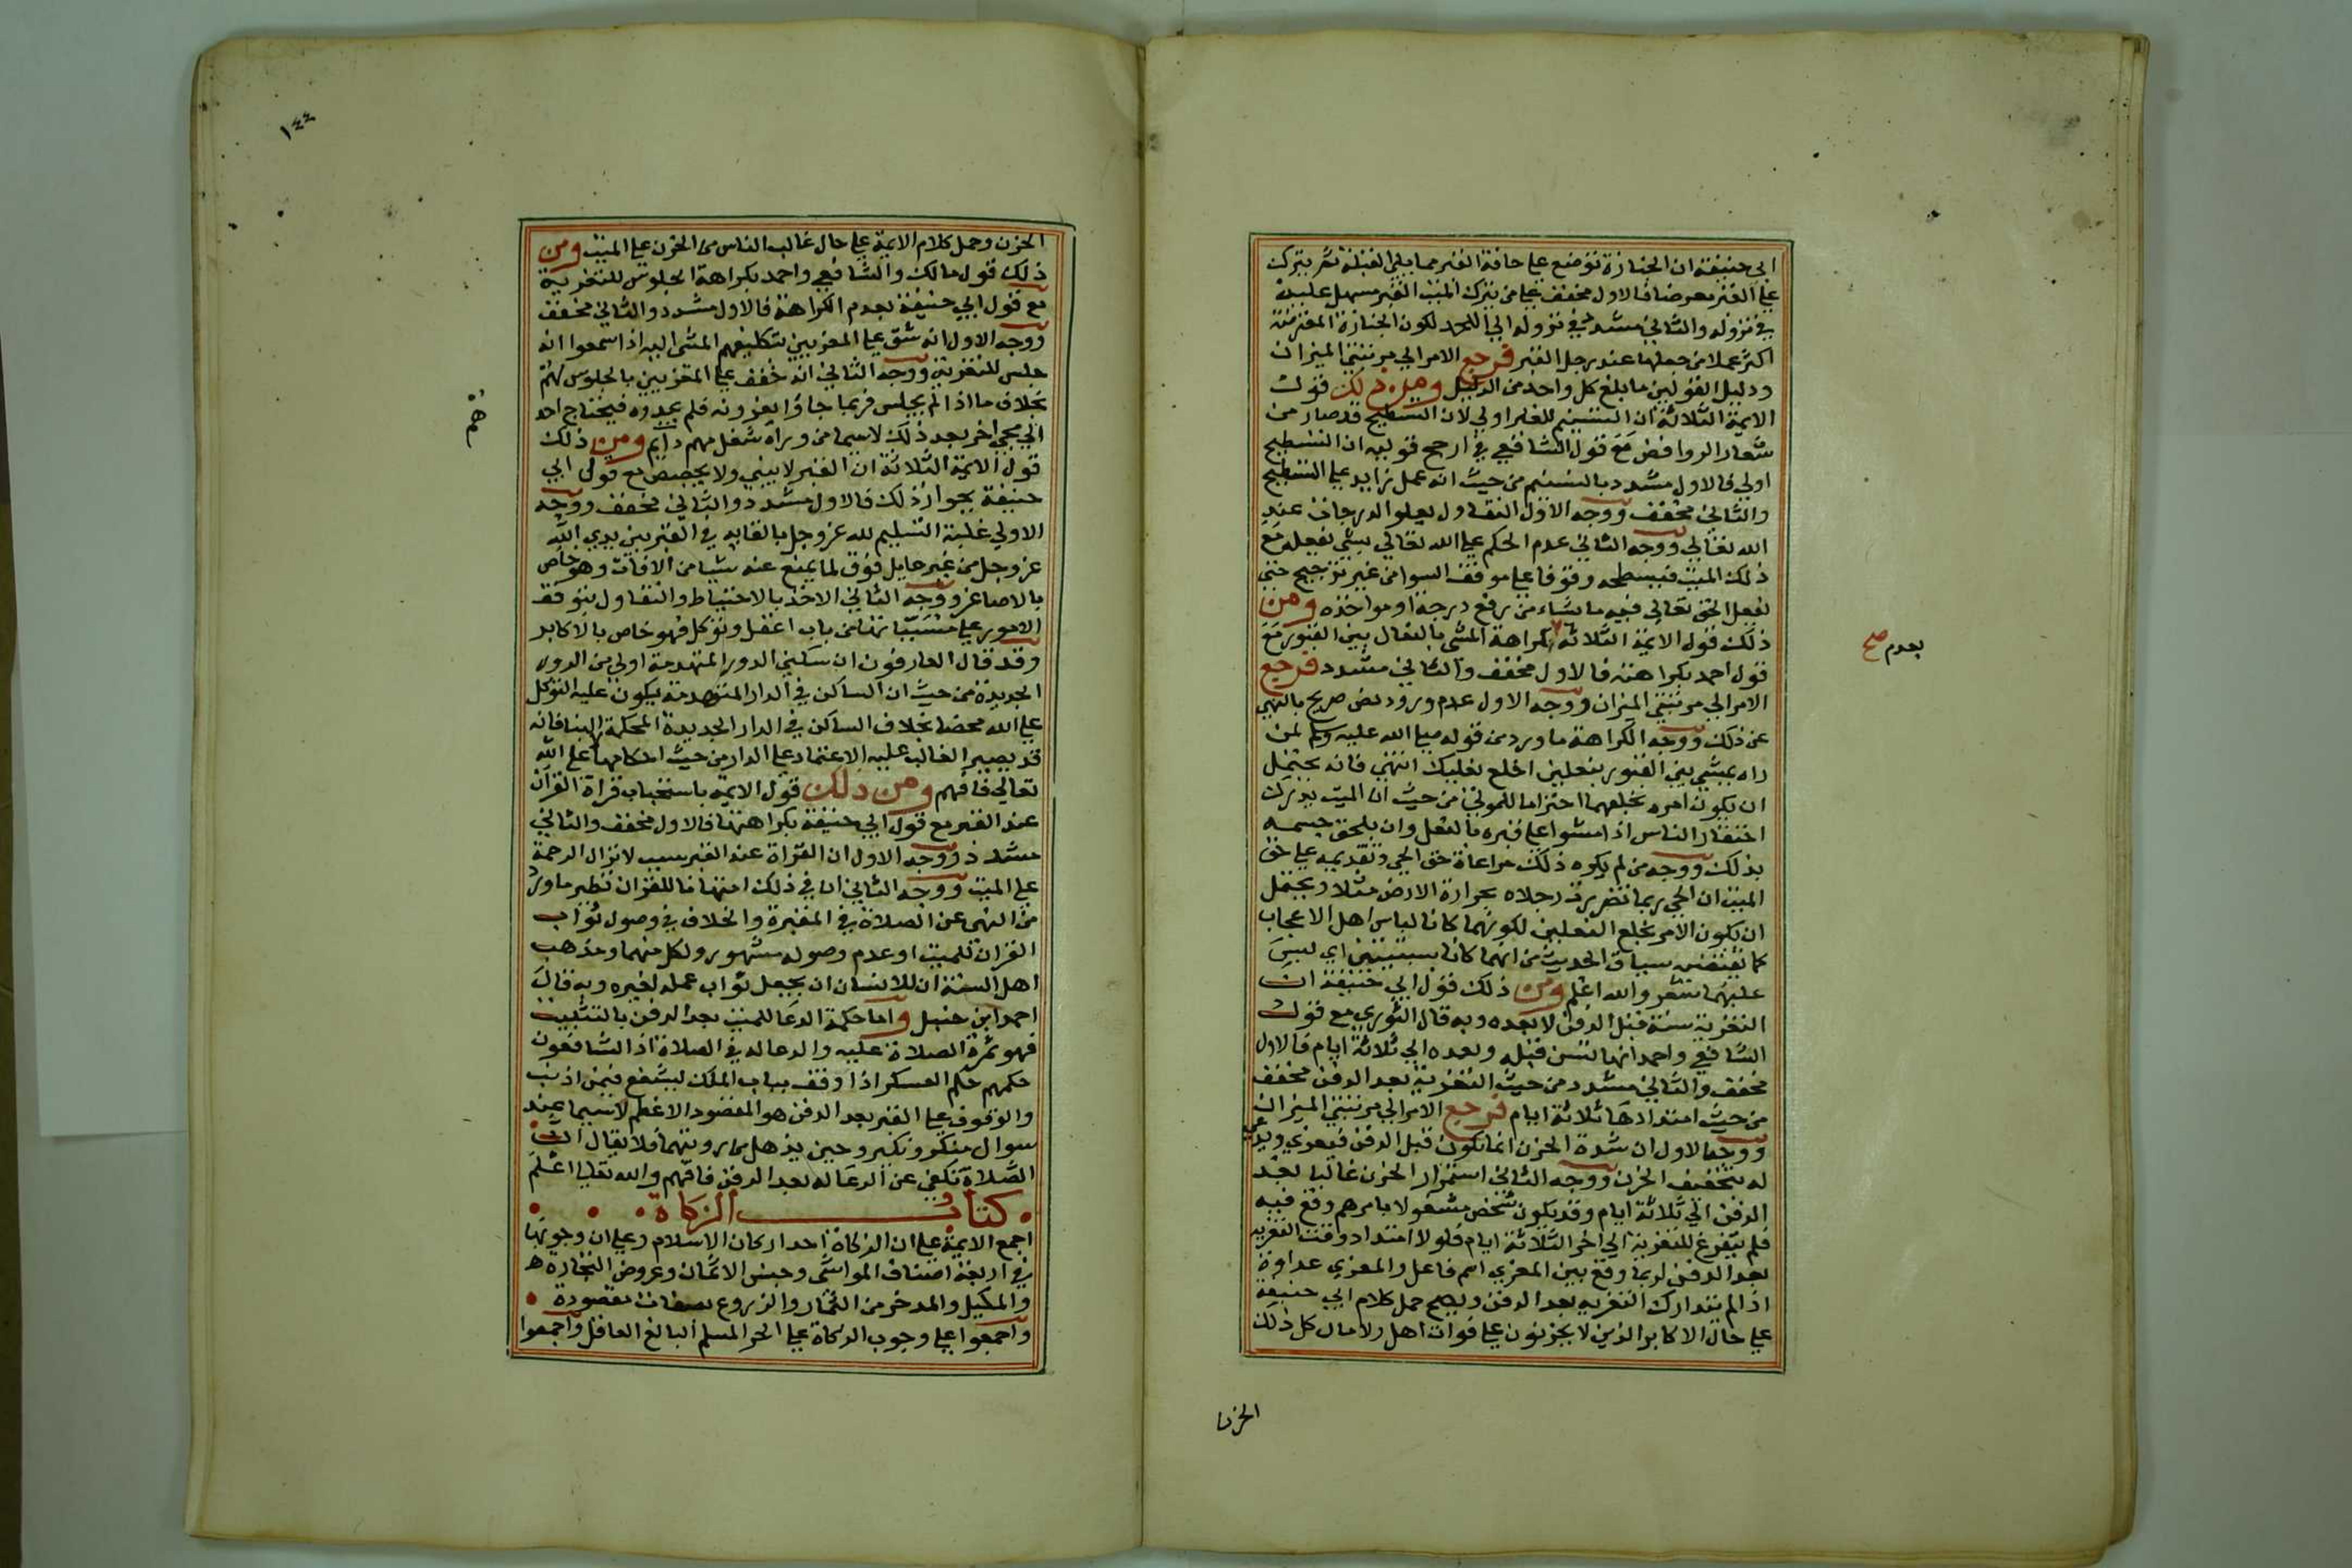 ابي حنيفة ان الجنازة توضع علي حافة القبر مما يلي القبلة ثم ينزل
علي القبر معرضا فالاول مخفف علي من ينزل الميت القبر مسهل عليه
في نزوله والثاني مشدد في نزوله الي اللحد لكون الجنازة المعترضة
اكثر عملا من جعلها عند رجل القبر فرجع الامر الي مرتبتي الميزان
ودليل القولين ما بلغ كل واحد من الدليل ومن ذلك قول
الايمة الثلاثة ان التسنيم للقبر اولي لان التسطيح قد صار من
شعار الروافض مع قول الشافعي في ارجح قوليه ان التسطيح
اولي فالاول مشدد بالتسنيم من حيث انه عمل زايد علي التسطيح
والثاني مخفف ووجه الاول التفاول بعلو الدرجات عند
الله تعالي ووجه الثاني عدم الحكم علي الله تعالي بشي يفعله مع
ذلك الميت فيسطحه وقوفا علي موقف السوا من غير ترجيح حتي
يفعل الحق تعالي فيه ما شاء من رفع درجة او مواخذه ومن
ذلك قول الايمة الثلاثة كراهة المشي بالنعال بين القبور مع
بعدم صح
قول احمد بكراهته فالاول مخفف والثاني مشدد فرجع
الامر الي مرتبتي الميزان ووجه الاول عدم ورود نص صريح بالنهي
عن ذلك ووجه الكراهة ما ورد من قوله صلي الله عليه وسلم لمن
راه يمشي بين القبور بنعلين اخلع نعليك انتهي فانه يحتمل
ان يكون امره بخلعهما احتراما للموتي من حيث ان الميت يدرك
احتقار الناس اذا مشوا علي قبره بالنعل وان يلحق جسمه
بذلك ووجه من لم يكره ذلك مراعاة حق الحي وتقديمه علي حق
الميت ان الحي ربما تضررت رجلاه بحرارة الارض مثلا ويحتمل
ان يكون الامر بخلع النعلين لكونهما كانا لباس اهل الاعجاب
كما يقتضيه سياق الحديث من انهما كانا سبتيتين اي ليس
عليهما شعر والله اعلم ومن ذلك قول ابي حنيفة ان
التعزية سنة قبل الدفن لا بعده وبه قال الثوري مع قول
الشافعي واحمد انها تسن قبله وبعده الي ثلاثة ايام فالاول
مخفف والثاني مشدد من حيث التعزية بعد الدفن مخفف
من حيث امتدادها ثلاثة ايام فرجع الامر الي مرتبتي الميزان
ووجه الاول ان شدة الحزن انما تكون قبل الدفن فيعزي ويدعي
له بتخفيف الحزن ووجه الثاني استمرار الحزن غالبا بعد
الدفن الي ثلاثة ايام وقد يكون شخص مشغولا بامرهم وقع فيه
فلم يتفرغ للتعزية الي اخر الثلاثة ايام فلولا امتداد وقت التعزيه
بعد الدفن لربما وقع بين المعزي اسم فاعل والمعزي عداوة
اذا لم يتدارك التعزيه بعد الدفن ويصح حمل كلام ابي حنيفة
علي حال الاكابر الذين لا يحزنون علي فوات اهل ولا مال كل ذلك
الحزن
١٤٤
الحزن وحمل كلام الايمة علي حال غالب الناس من الحزن علي الميت ومن
ذلك قول مالك والشافعي واحمد بكراهة الجلوس للتعزية
مع قول ابي حنيفة بعدم الكراهة فالاول مشدد والثاني مخفف
ووجه الاول انه شق علي المعزيين بتكليفهم المشي اليه اذا سمعوا انه
جلس للتعزية ووجه الثاني انه خفف علي المعزيين بالجلوس لهم
بخلاف ما اذا لم يجلس فربما جاؤا يعزونه فلم يجدوه فيحتاج احد
الي مجي اخر بعد ذلك لاسيما من وراه شغل مهم دايم ومن ذلك
قول الايمة الثلاثة ان القبر لا يبني ولا يجصص مع قول ابي
حنيفة بجواز ذلك فالاول مشدد والثاني مخفف ووجه
الاولي غلبة التسليم لله عز وجل بالقايه في القبر بين يدي الله
عز وجل من غير حايل فوق لما يمنع عنه شيا من الافات وهو خاص
بالاصاغر ووجه الثاني الاخذ بالاحتياط والتفاول بتوقف
الامور علي مسبباتها من باب اعقل وتوكل فهو خاص بالاكابر
وقد قال العارفون ان سكني الدور المتهدمة اولي من الدور
الجديدة من حيث ان الساكن في الدار المتهدمة يكون عليه التوكل
علي الله محضا بخلاف الساكن في الدار الجديدة المحكمة البنا فانه
قد يصير الغالب عليه الاعتماد علي الدار من حيث احكامها علي الله
تعالي فافهم ومن ذلك قول الايمة باستحباب قراة القران
عند القبر مع قول ابي حنيفة بكراهتها فالاول مخفف والثاني
مشدد ووجه الاول ان القراة عند القبر سبب لانزال الرحمة
علي الميت ووجه الثاني ان في ذلك امتهانا للقران نظير ما ورد
من النهي عن الصلاة في المقبرة والخلاف في وصول ثواب
القران للميت او عدم وصوله مشهور ولكل منهما ومذهب
اهل السنة ان للانسان ان يجعل ثواب عمله لغيره وبه قال
احمد ابن حنبل واما حكمة الدعا للميت بعد الدفن بالتثبيت
فهو ثمرة الصلاة عليه والدعا له في الصلاة اذ الشافعون
حكمهم حكم العسكر اذا وقف بباب الملك ليشفع فيمن اذنب
والوقوف علي القبر بعد الدفن هو المقصود الاعظم لاسيما عند
سوال منكر ونكير وحين يذهل من رويتهما فلا يقال ان
الصلاة تكفي عن الدعا له بعد الدفن فافهم والله تعالي اعلم
كتاب الزكاة
اجمع الايمة علي ان الزكاة احد اركان الاسلام وعلي ان وجوبها
في اربعة اصناف المواشي وجنس الاثمان وعروض التجاره
والمكيل والمدخر من الثمار والزروع بصفات مقصودة
واجمعوا علي وجوب الزكاة علي الحر المسلم البالغ العاقل واجمعوا